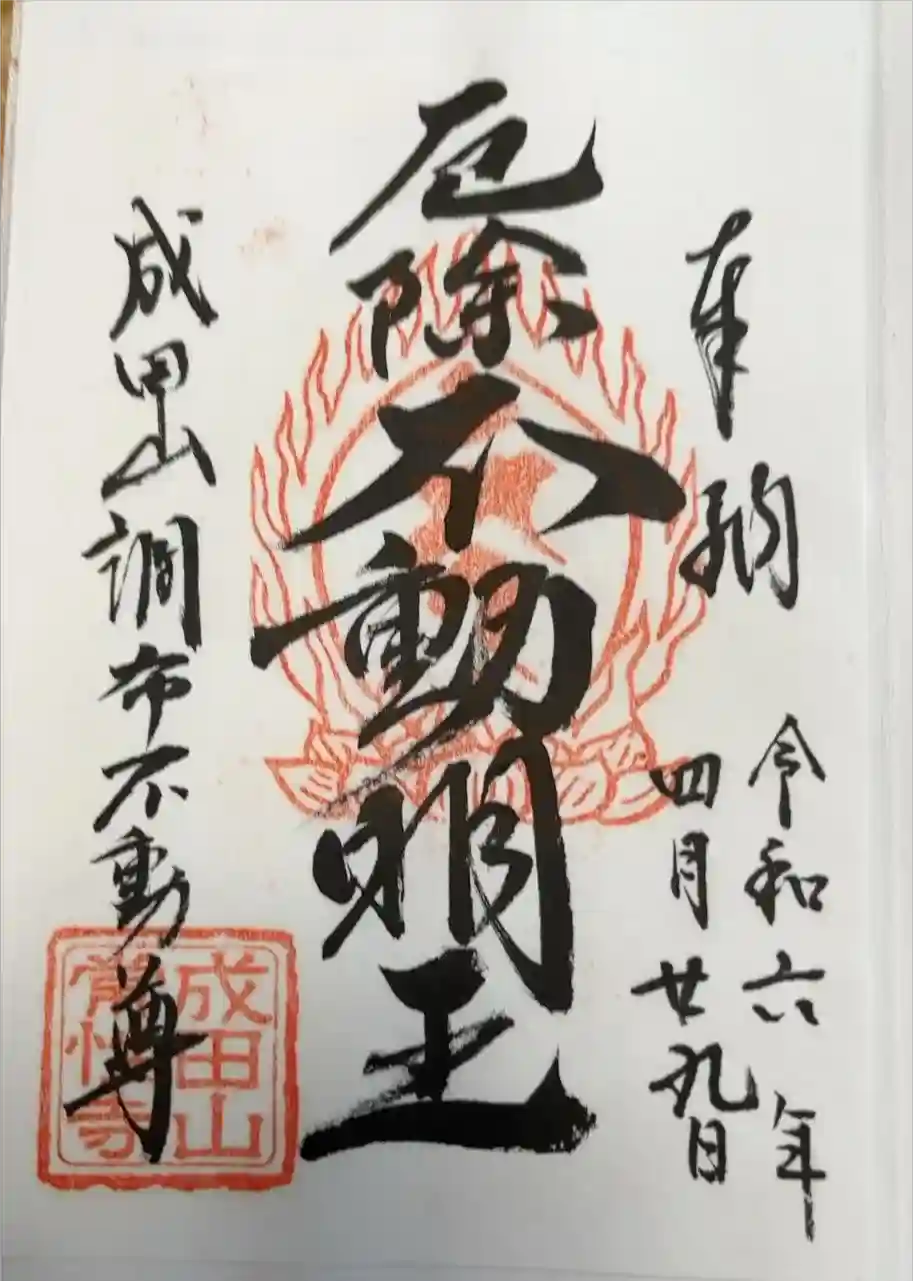 奉納
令和六年
四月廿九日
厄除不動明王
成田山調布不動尊
成田山
常性寺